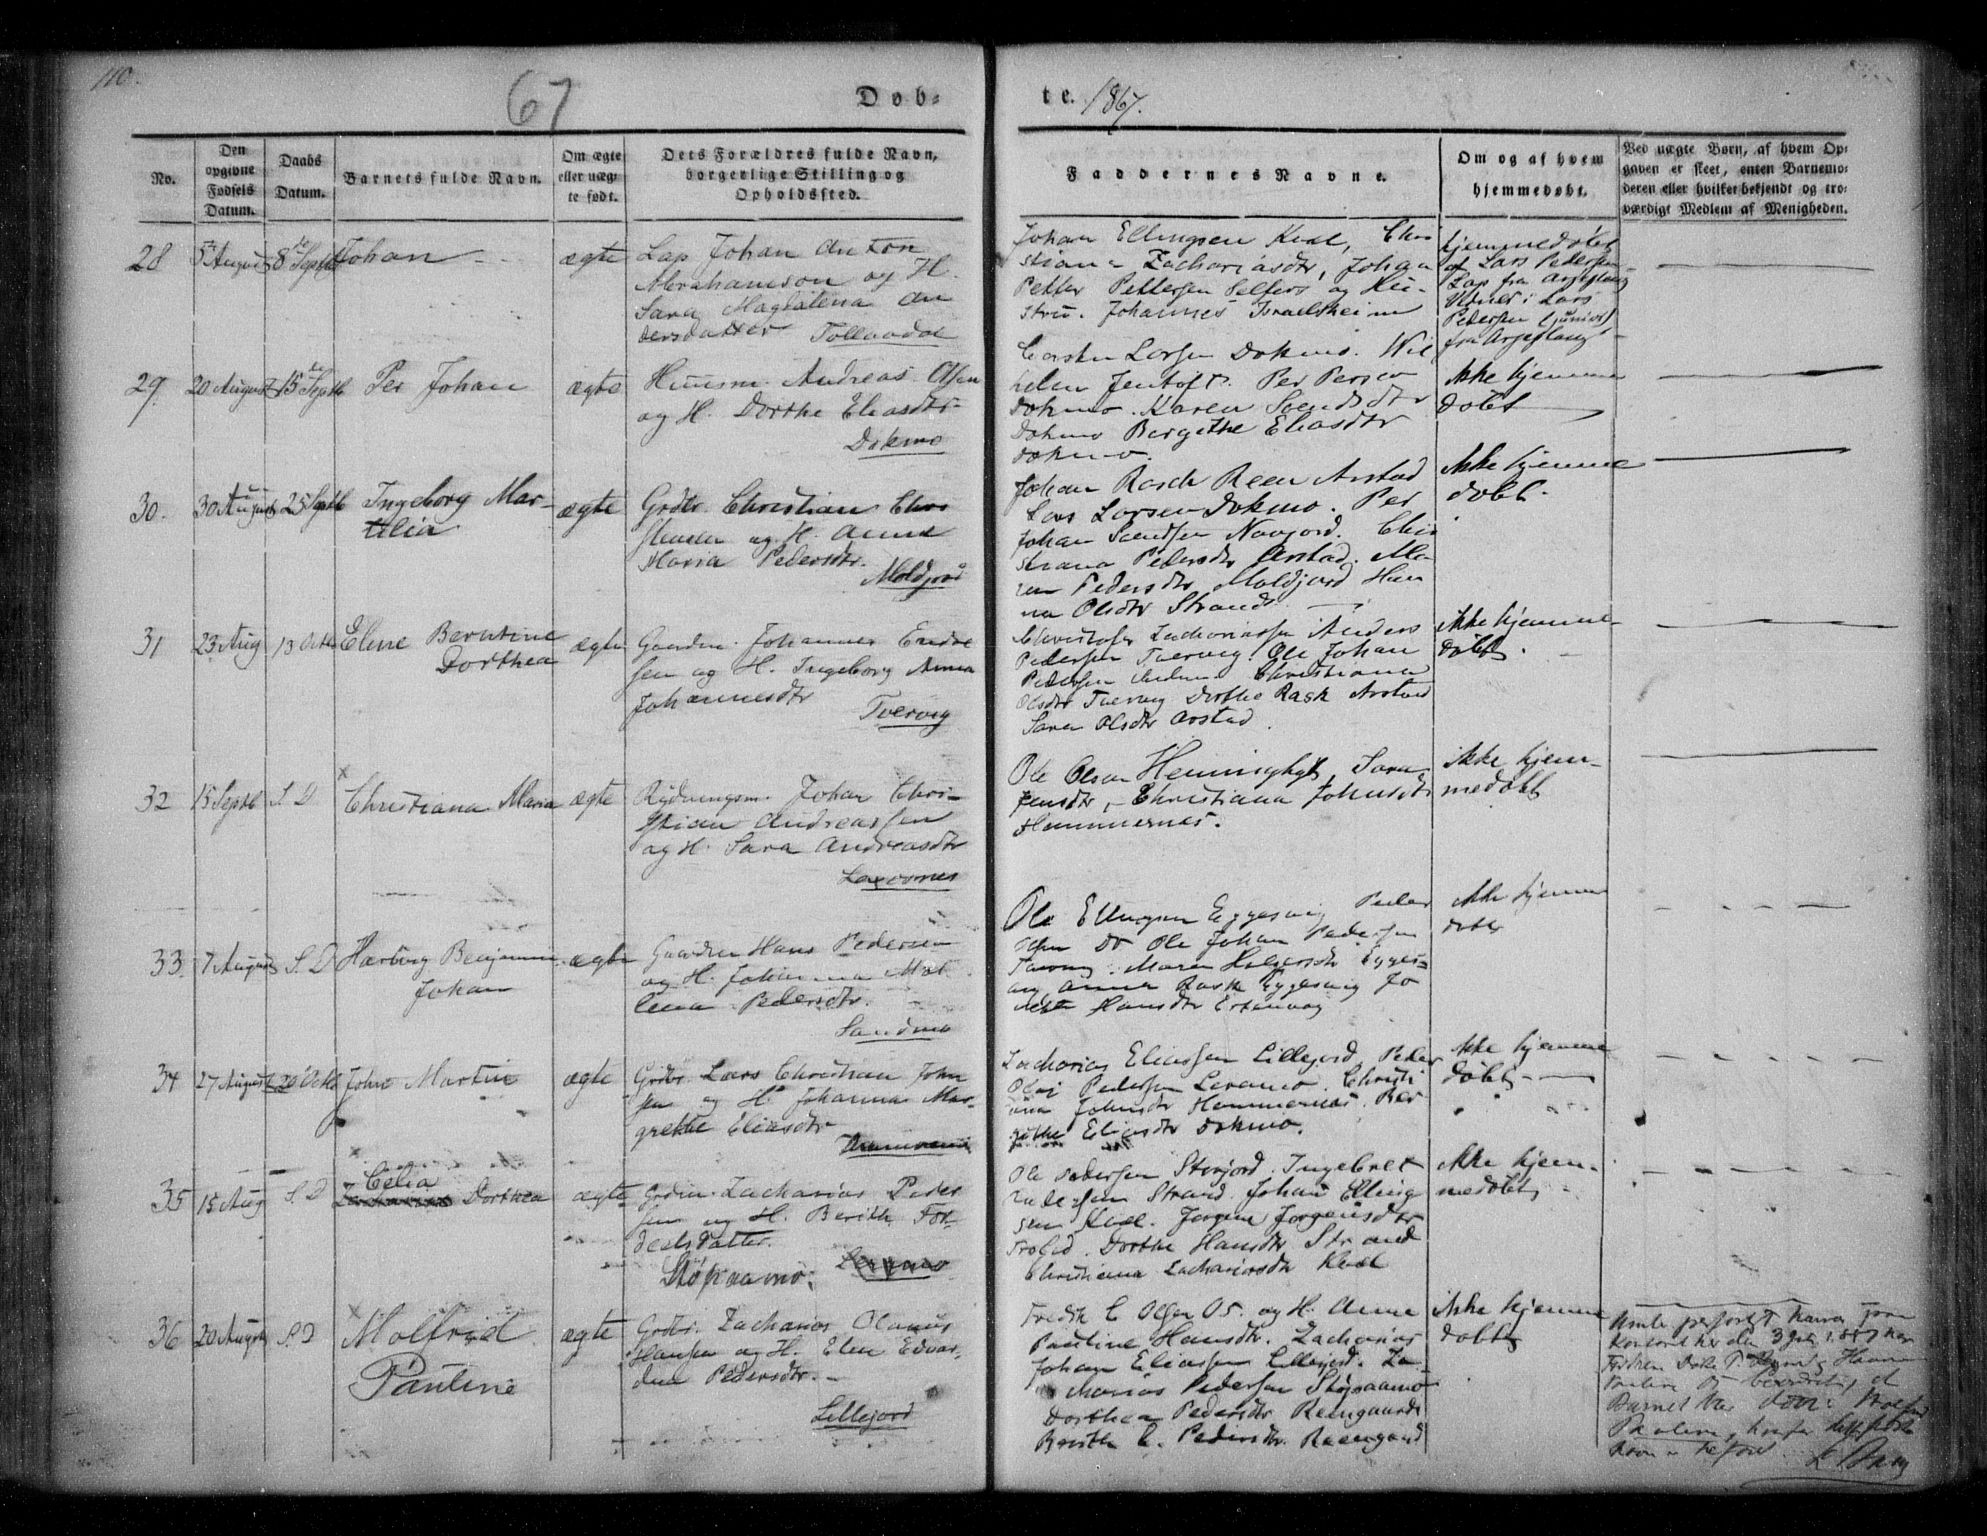 110.
67
Døb-
te. 1867.
No.
Den
opgivne
Fødsels
Datum.
Daabs
Datum.
Barnets fulde Navn.
Om ægte
eller uæg-
te født.
Dets Forældres fulde Navn,
borgerlige Stilling og
Opholdssted.
Faddernes Navne.
Om og af hvem
hjemmedøbt.
Ved uægte Børn, af hvem Op-
gaven er skeet, enten Barnemo-
deren eller hvilket bekjendt og tro-
værdigt Medlem af Menigheden.
28
5 August
8de Septb
Johan
ægte
Lap Johan Anton
Abrahamson og H.
Sara Magdalena An
dersdatter Tollaadal
Johan Ellingsen Kvæl, Chri
stiana Zachariasdtr, Johan
Petter Pettersen Selfors og Hu-
stru. Johannes Israelsheim
hjemmedøbt
af Lars Pedersen
Lap fra Arjeplaug
Vidne: Lars
Pedersen (junior)
fra Arjeplaug
29
20 August
15de Septb
Per Johan
ægte
Huusm. Andreas Olsen
og H. Dorthe Eliasdtr
Dokmo
Carsten Larsen Dokmo. Wil
helm Jentoft. Per Persen
Dokmo. Karen Svendsdtr
Dokmo Bergithe Eliasdtr
Dokmo.
Ikke hjemme
døbt
30.
30 August
25 Septb
Ingeborg Mar-
ælia
ægte
Grdbr. Christian Chri
stensen og H. Anne
Maria Pedersdtr.
Moldjord
Johan Rasch Reen Arstad
Lars Larsen Dokmo. Per
Johan Svendsen Navjord. Chri
stiana Pedersdtr Arstad. Ma-
ren Pedersdtr Moldjord Han
na Olsdtr Strand
Ikke hjemme
døbt.
31
23 Aug
13 Octb
Eline Berntine
Dorthea
ægte
Gaardm. Johannes Endre
sen og H. Ingeborg Anna
Johannesdtr
Tvervig
Christofer Zachariassen Anders
Pedersen Tvervig. Ole Johan
Pedersen Christiana
Olsdtr Tvervig Dorthe Rask Arstad
Sara Olsdtr Arstad.
Ikke hjemme-
døbt.
32
15 Septb
S. D
Christiana Maria
ægte
Rydningsm. Johan Chri-
stian Andreassen
og H. Sara Andreasdtr
Laxosnes
Ole Olsen Sara
Jensdtr, Christiana Johnsdtr
Hammernes.
Ikke hjem-
medøbt
33.
7 August
S. D
Hartvig Benjamin
Johan
ægte
Gaardm Hans Pedersen
og H. Johanna Mat
lena Pedersdtr.
Sandmo
Ole Ellingsen Eggesvig Peder
Olsen Do Ole Johan Pedersen
Tvervig. Maren Eygges-
vig Anna Rask Eyggesvig Jo
Hansdtr
Ikke hjemme
døbt
34
27 August
20 Octb
John Martin
ægte
Grdbr. Lars Christian John
sen og H. Johanna Mar-
grethe Eliasdtr
Zacharias Eliassen Lillejord. Peder
Olai Pedersen Leramo. Christi
ana Johnsdtr Hammernes. Ber
githe Eliasdtr Dokmo.
Ikke hjemme
døbt
35
15 Aug
S. D
Celia
Dorthea
ægte
Grdm. Zacharias Peder
sen og H. Berith For-
dealsdatter.
Støpaamo.
Leramo
Ole Pedersen Storjord. Ingebret
Pedersen Strand. Johan Elling
sen Kvæl. Jørgine Jørgensdtr
Trolid. Dorthe Hansdtr Strand
Christiana Zachariasdtr Kvæl
Ikke hjem-
medøbt
36
20 August
S. D
Molfrid
Pauline
ægte
Grdbr. Zacharias Olaus
Hansen og H. Elen Edvar-
dine Pedersdtr.
Lillejord
Fredk C Olsen Os. og H. Anne
Pauline Hansdtr. Zacharias
Johan Eliassen Lillejord. Za-
charias Pedersen Støpaamo
Dorthea Pedersdtr Reengaard
Berith C. Pedersdtr. Reengaard
Ikke hjemme
døbt
Barnet